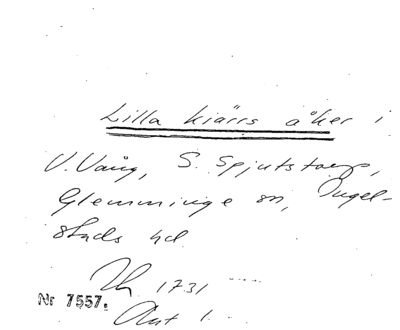 Lilla kiärrs åker i
V. Vång, S. Spjutstorp,
Glemminge sn, Ingel-
stads hd
1731
Nr 7557.
Akt 1